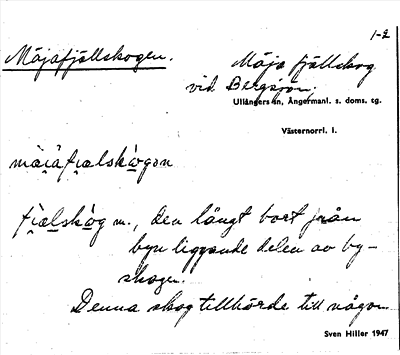 1-2
Måjafjällskogen.
Måja fjällskog
vid Bergsjön,
Ullångers sn, Ångermanl. s. doms. tg.
Västernorrl. l.
fjälskòg m., den långt bort från
byn liggande delen av by-
skogen.
Denna skog tillhörde till någon
Sven Hiller 1947